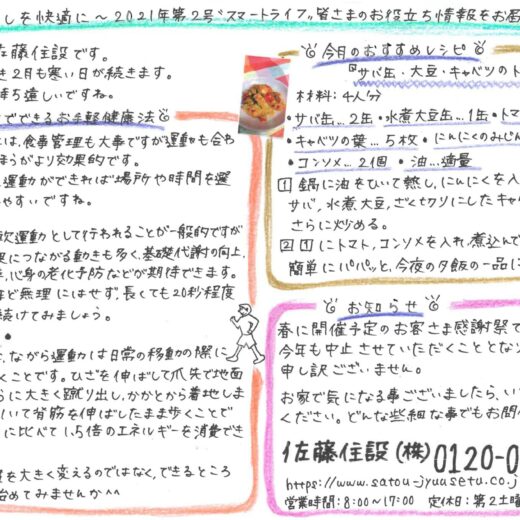 しを快適に～2021年第2号〝スマートライフ〟皆さまのお役立ち情報をお届
佐藤住設です。
き2月も寒い日が続きます。
待ち遠しいですね。
できるお手軽健康法
には、食事管理も大事ですが運動も合わ
ほうがより効果的です。
運動ができれば場所や時間を選
やすいですね。
軟運動として行われることが一般的ですが
果につながる動きも多く、基礎代謝の向上、
心身の老化予防などが期待できます。
ほど無理にはせず、長くても20秒程度
続けてみましょう。
ながら運動は日常の移動の際に
くことです。ひざを伸ばして爪先で地面
らに大きく蹴り出し、かかとから着地しま
して背筋を伸ばしたまま歩くことで
に比べて1.5倍のエネルギーを消費でき
を大きく変えるのではなく、できるところ
始めてみませんか^^
今月のおすすめレシピ
『サバ缶・大豆・キャベツのト
材料:4人分
・サバ缶…2缶・水煮大豆缶…1缶・トマ
・キャベツの葉…5枚・にんにくのみじん
・コンソメ…2個・油…適量
1 鍋に油をひいて熱し、にんにくを入
サバ、水煮大豆、ざく切りにしたキャ
さらに炒める。
2 1にトマト、コンソメを入れ、煮込んで
簡単にパパッと、今夜の夕飯の一品に
お知らせ
春に開催予定のお客さま感謝祭で
今年も中止させていただくこととなり
申し訳ございません。
お家で気になる事ございましたら、い
ください。どんな些細な事でもお問
佐藤住設(株)0120-0
https://www.satou-jyuusetu.co.j
営業時間:8:00～17:00 定休日:第2土曜